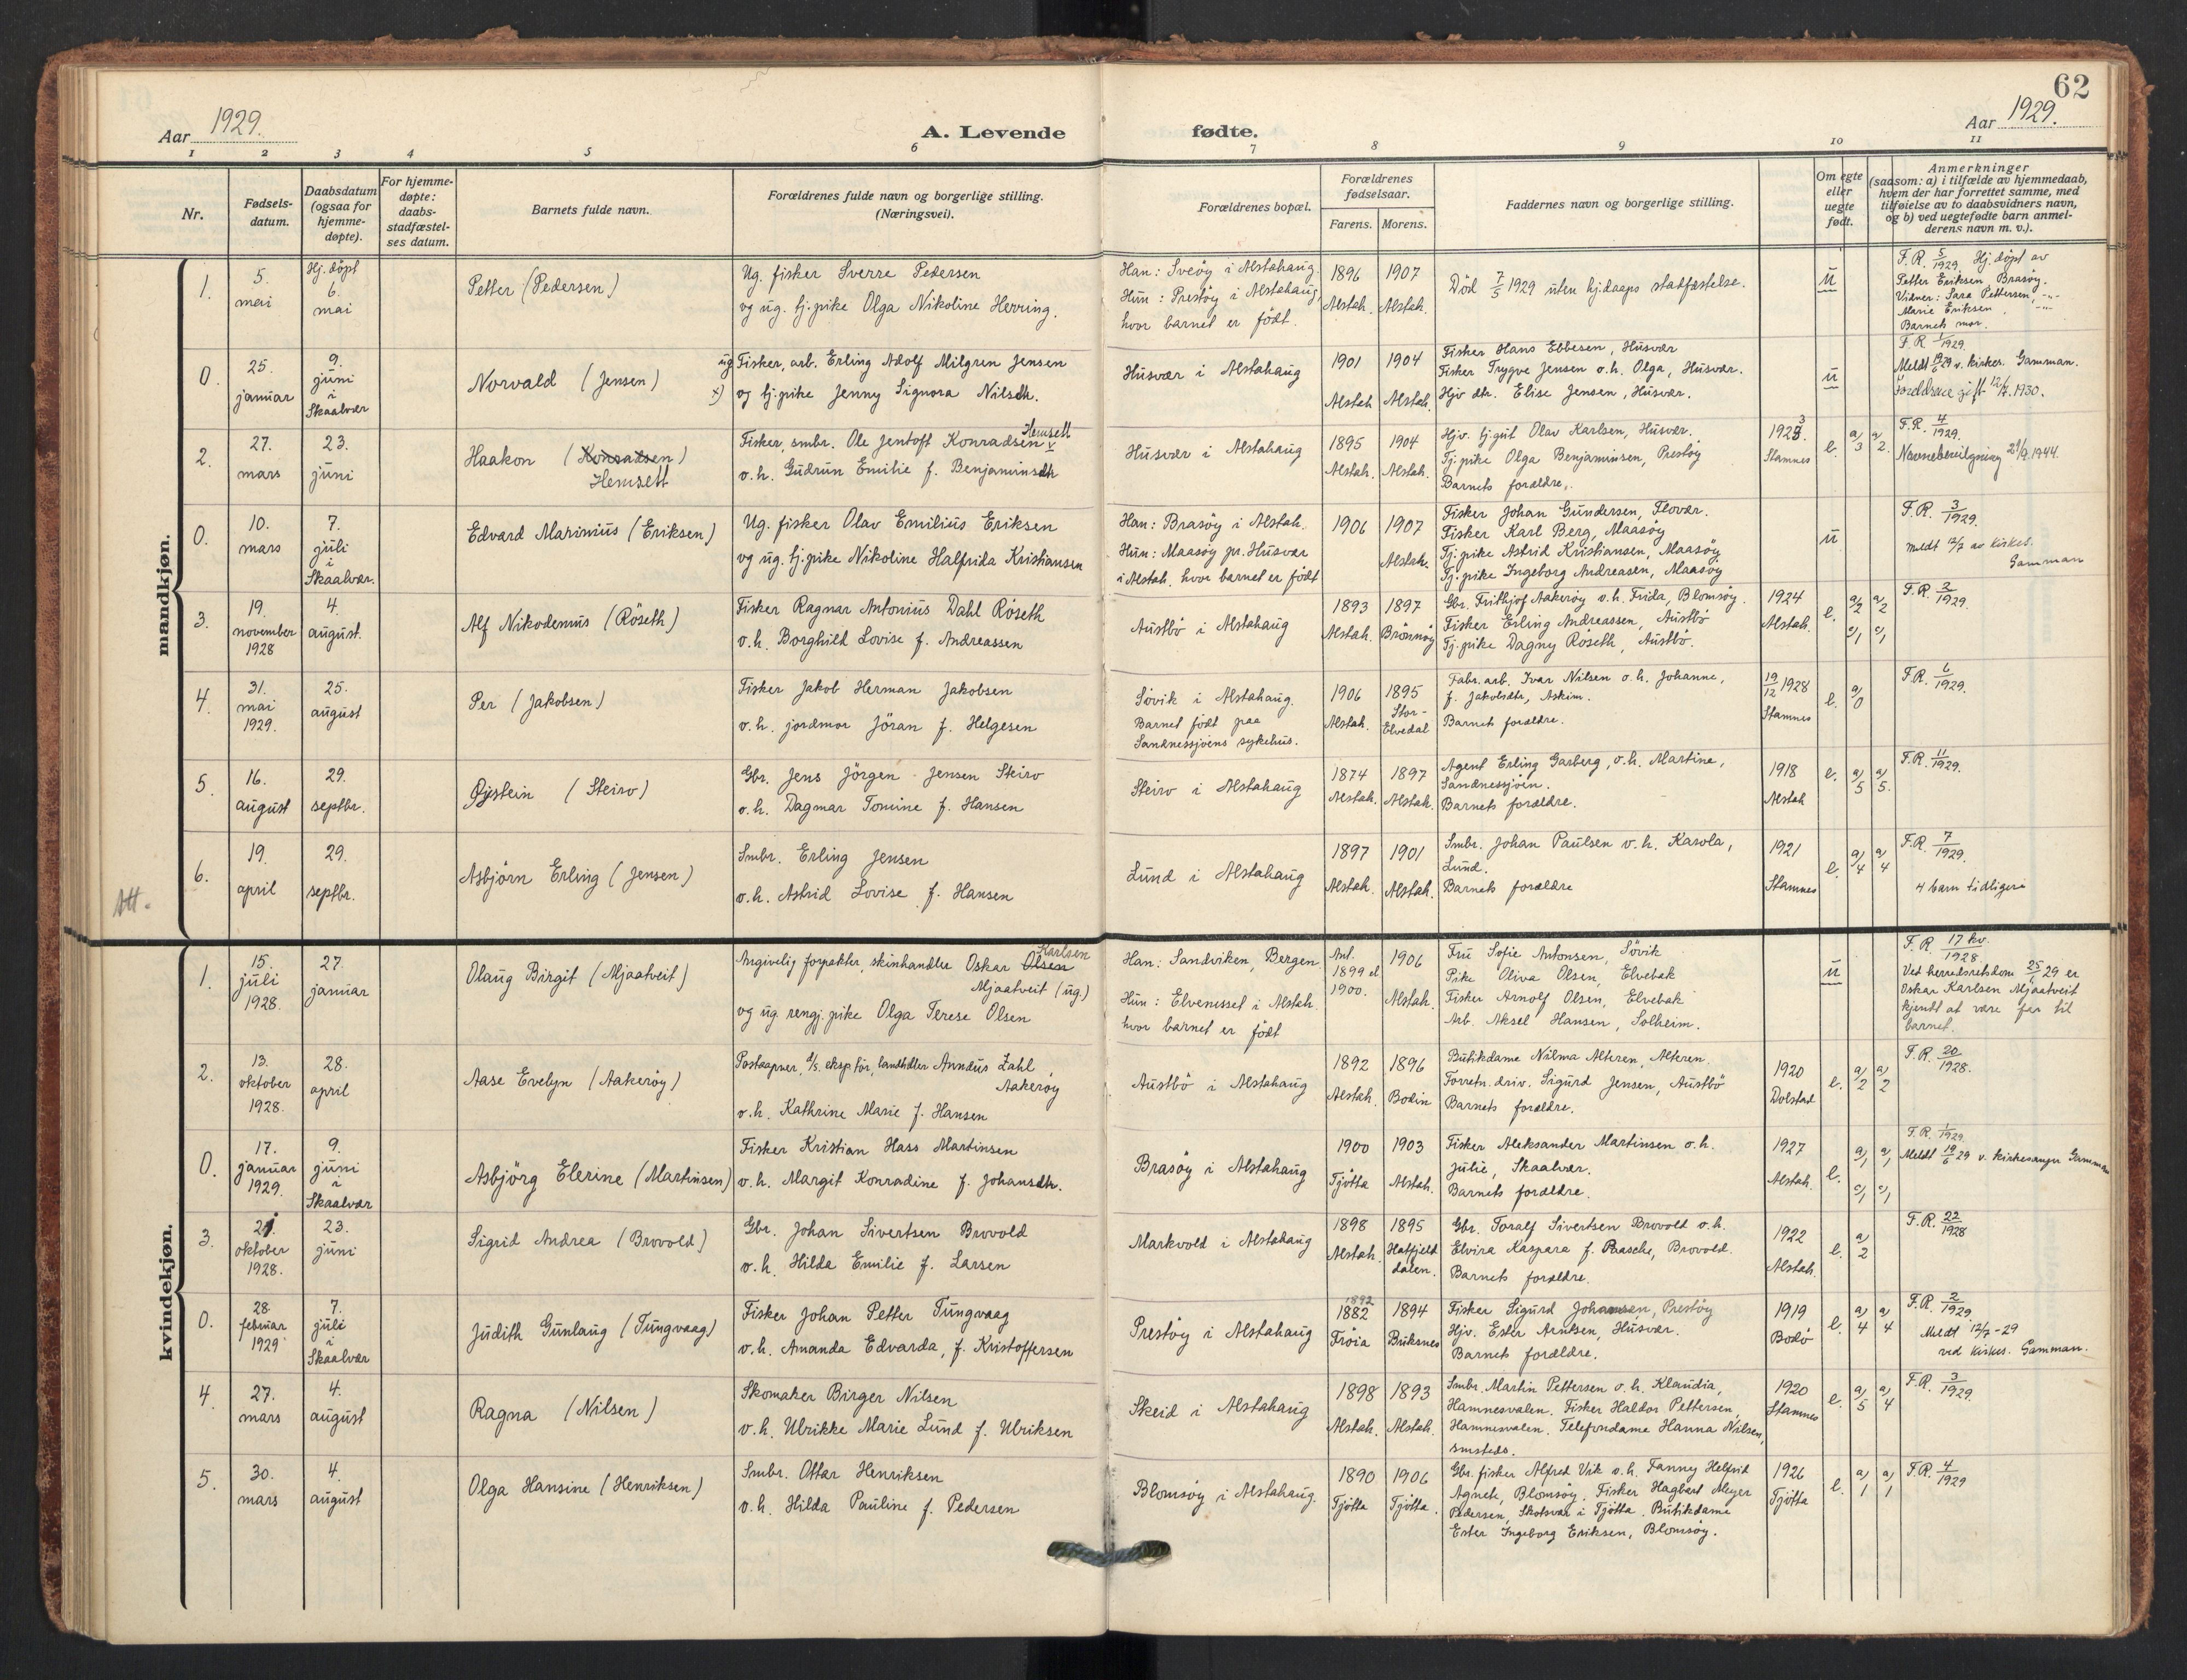 62
Aar 1929.
A. Levende fødte.
Aar 1929.
1 2 3 4 5 6 7 8 9 10 11
Nr.
Fødsels-
datum.
Daabsdatum
(ogsaa for
hjemme-
døpte).
For hjemme-
døpte:
daabs-
stadfæstel-
ses datum.
Barnets fulde navn.
Forældrenes fulde navn og borgerlige stilling.
(Næringsvei).
Forældrenes bopæl.
Forældrenes
fødselsaar.
Farens. Morens.
Faddernes navn og borgerlige stilling.
Om egte
eller
uegte
født.
Anmerkninger
(saasom: a) i tilfælde av hjemmedaab,
hvem der har forrettet samme, med
tilføielse av to daabsvidners navn,
og b) ved uegtefødte barn anmel-
derens navn m. v.).
mandkjøn.
1.
5.
mai
Hj. döpt
6.
mai
Petter (Pedersen)
Ug. fisker Sverre Pedersen
og ug. tj. pike Olga Nikoline Herring.
Han: Sveöy i Alstahaug.
Hun: Prestöy i Alstahaug,
hvor barnet er födt.
1896 Alstah.
1907 Alstah.
Död 7/5 1929 uten hj.daaps stadfæstelse.
u
F.R. 5/1929. Hj. döpt av
Petter Eriksen Brasöy.
Vidner: Sara Pettersen, -"-
Marie Eriksen, -"-
Barnets mor.
0.
25.
januar
9.
juni
i
Skaalvær
Norvald (Jensen)
ug. Fisker, arb. Erling Adolf Milgren Jensen
x) og tj. pike Jenny Signora Nilsdtr.
Husvær i Alstahaug
1901 Alstah
1904 Alstah.
Fisker Hans Ebbesen, Husvær
Fisker Trygve Jensen o.h. Olga, Husvær.
Hjv dtr. Elise Jensen, Husvær.
u
F.R. 1/1929.
Meldt 19/6 29 v. kirkes. Gamman.
Foreldrene gift 12/7. 1930.
2.
27.
mars
23.
juni
Haakon (Konradsen)
Hemsett
Fisker, smbr. Ole Jentoft Konradsen Hemsett
o.h. Gudrun Emilie f. Benjaminsdtr
Husvær i Alstahaug
1895 Alstah.
1904 Alstah.
Hjv. tj.gut Olav Karlsen, Husvær.
Tj. pike Olga Benjaminsen, Prestöy
Barnets forældre.
1923.
Stamnes
e. a/3 a/2.
F.R. 4/1929.
Navnebevilgning 29/9. 1944.
0.
10.
mars
7.
juli
i
Skaalvær.
Edvard Marinius (Eriksen)
Ug. fisker Olav Emilius Eriksen
og ug. tj. pike Nikoline Halfrida Kristiansen
Han: Brasöy i Alstah.
Hun: Maasöy pr. Husvær
i Alstah. hvor barnet er födt
1906
1907 Alstah.
Fisker Johan Gundersen, Flovær.
Fisker Karl Berg, Maasöy
Tj. pike Astrid Kristiansen, Maasöy
Tj. pike Ingeborg Andreasen, Maasöy
u
F.R. 3/1929.
meldt 12/7 av kirkes.
Gamman
3.
19.
november
1928
4.
august.
Alf Nikodemus (Röseth)
Fisker Ragnar Antonius Dahl Röseth
o.h. Borghild Lovise f. Andreassen
Austbö i Alstahaug
1893 Alstah.
1897 Brönnöy
Gbr. Frithjof Aakeröy o.h. Frida, Blomsöy.
Fisker Erling Andreassen, Austbö
Tj. pike Dagny Röseth, Austbö.
1924
Alstah.
e. a/2 a/2
c/1 c/1
F.R. 2/1929.
4.
31.
mai
1929.
25.
august
Per (Jakobsen)
Fisker Jakob Herman Jakobsen
o.h. jordmor Jöran f. Helgesen
Sövik i Alstahaug.
Barnet födt paa
Sandnessjöens sykehus.
1906 Alstah.
1895 Stor-
Elvedal
Fabr. arb. Ivar Nilsen o.h. Johanne,
f. Jakobsdtr, Askim.
Barnets forældre.
19/12 1928
Stamnes
e. a/0
F.R. 6/1929.
5.
16.
august
29.
septbr.
Øystein (Steiro)
Gbr. Jens Jörgen Jensen Steiro
o.h. Dagmar Tomine f. Hansen
Steiro i Alstahaug
1874 Alstah.
1897 Alstah.
Agent Erling Garberg, o.h. Martine,
Sandnessjöen.
Barnets forældre.
1918
Alstah
e. a/5 a/5.
F.R. 11/1929.
Att.
6.
19.
april
29.
septbr.
Asbjörn Erling (Jensen)
Smbr. Erling Jensen
o.h. Astrid Lovise f. Hansen
Lund i Alstahaug
1897 Alstah.
1901 Alstah.
Smbr. Johan Paulsen o.h. Karola,
Lund.
Barnets forældre
1921
Stamnes
e. a/4 a/4
F.R. 7/1929.
4 barn tidligere
kvindekjøn.
1.
15.
juli
1928.
27.
januar
Olaug Birgit (Mjaatveit)
Angivelig forpakter, skinhandler Oskar Olsen Karlsen
Mjaatveit (ug.)
og ug. rengj. pike Olga Terese Olsen
Han: Sandviken, Bergen
Hun: Elvenesset i Alstah.
hvor barnet er födt
Ant.
1899 el
1900.
1906 Alstah.
Fru Sofie Antonsen, Sövik
Pike Oliva Olsen, Elvebak
Fisker Arnolf Olsen, Elvebak
Arb. Aksel Hansen, Solheim.
u
F.R. 17 kv./1928
Ved herredsretsdom 25/1 29 er
Oskar Karlsen Mjaatveit
kjendt at være far til
barnet.
2.
13.
oktober
1928.
28.
april
Aase Evelyn (Aakeröy)
Postaapner, d/s. eksp.för, landhdler Annæus Zahl
Aakeröy
o.h. Kathrine Marie f. Hansen
Austbö i Alstahaug
1892 Alstah.
1896 Bodin
Butikdame Nilma Alteren, Alteren.
Forretn. driv. Sigurd Jensen, Austbö
Barnets forældre.
1920
Dolstad
e. a/2 a/2
F.R. 20/1928.
0.
17.
januar
1929.
9.
juni
i
Skaalvær
Asbjörg Elerine (Martinsen)
Fisker Kristian Hass Martinsen
o.h. Margit Konradine f. Johansdtr.
Brasöy i Alstahaug
1900 Tjötta
1903 Alstah.
Fisker Aleksander Martinsen o.h.
Julie, Skaalvær.
Barnets forældre.
1927
Alstah.
e. a/1 a/1
c/1 c/1
F.R. 1/1929.
Meldt 19/6 29 v. kirkesanger Gamman
3.
21.
oktober
1928.
23.
juni
Sigrid Andrea (Brovold)
Gbr. Johan Sivertsen Brovold
o.h. Hilda Emilie f. Larsen
Markvold i Alstahaug
1898 Alstah.
1895 Hatfjeld
dalen.
Gbr. Toralf Sivertsen Brovold o.h.
Elvira Kaspara f. Paasche, Brovold.
Barnets forældre.
1922
Alstah.
e. a/2
F.R. 22/1928
0.
28.
februar
1929
7.
juli
i
Skaalvær
Judith Gunlaug (Tungvaag)
Fisker Johan Petter Tungvaag
o.h. Amanda Edvarda, f. Kristoffersen
Prestöy i Alstahaug
1892
1882 Fröia
1894 Buksnes
Fisker Sigurd Johansen, Prestöy
Hjv. Ester Arntsen, Husvær.
Barnets forældre.
1919
Bodö
e. a/4 a/4
F.R. 2/1929.
Meldt 12/7-29
ved kirkes. Gamman.
4
27.
mars
4.
august
Ragna (Nilsen)
Skomaker Birger Nilsen
o.h. Ulrikke Marie Lund f. Ulriksen
Skeid i Alstahaug
1898 Alstah.
1893 Alstah.
Smbr. Martin Pettersen o.h. Klaudia,
Hamnesvalen. Fisker Haldor Pettersen,
Hamnesvalen. Telefondame Hanna Nilsen,
smsteds.
1920
Stamnes
e. a/5 a/4
F.R. 3/1929.
5.
30.
mars
4.
august
Olga Hansine (Henriksen)
Smbr. Ottar Henriksen
o.h. Hilda Pauline f. Pedersen
Blomsöy i Alstahaug.
1890 Tjötta
1906 Tjötta.
Gbr. fisker Alfred Vik o.h. Fanny Helfrid
Agnete, Blomsöy. Fisker Hagbart Meyer
Pedersen, Skotsvær i Tjötta. Butikdame
Ester Ingeborg Eriksen, Blomsöy.
1926
Tjötta
e. a/1 a/1
F.R. 4/1929